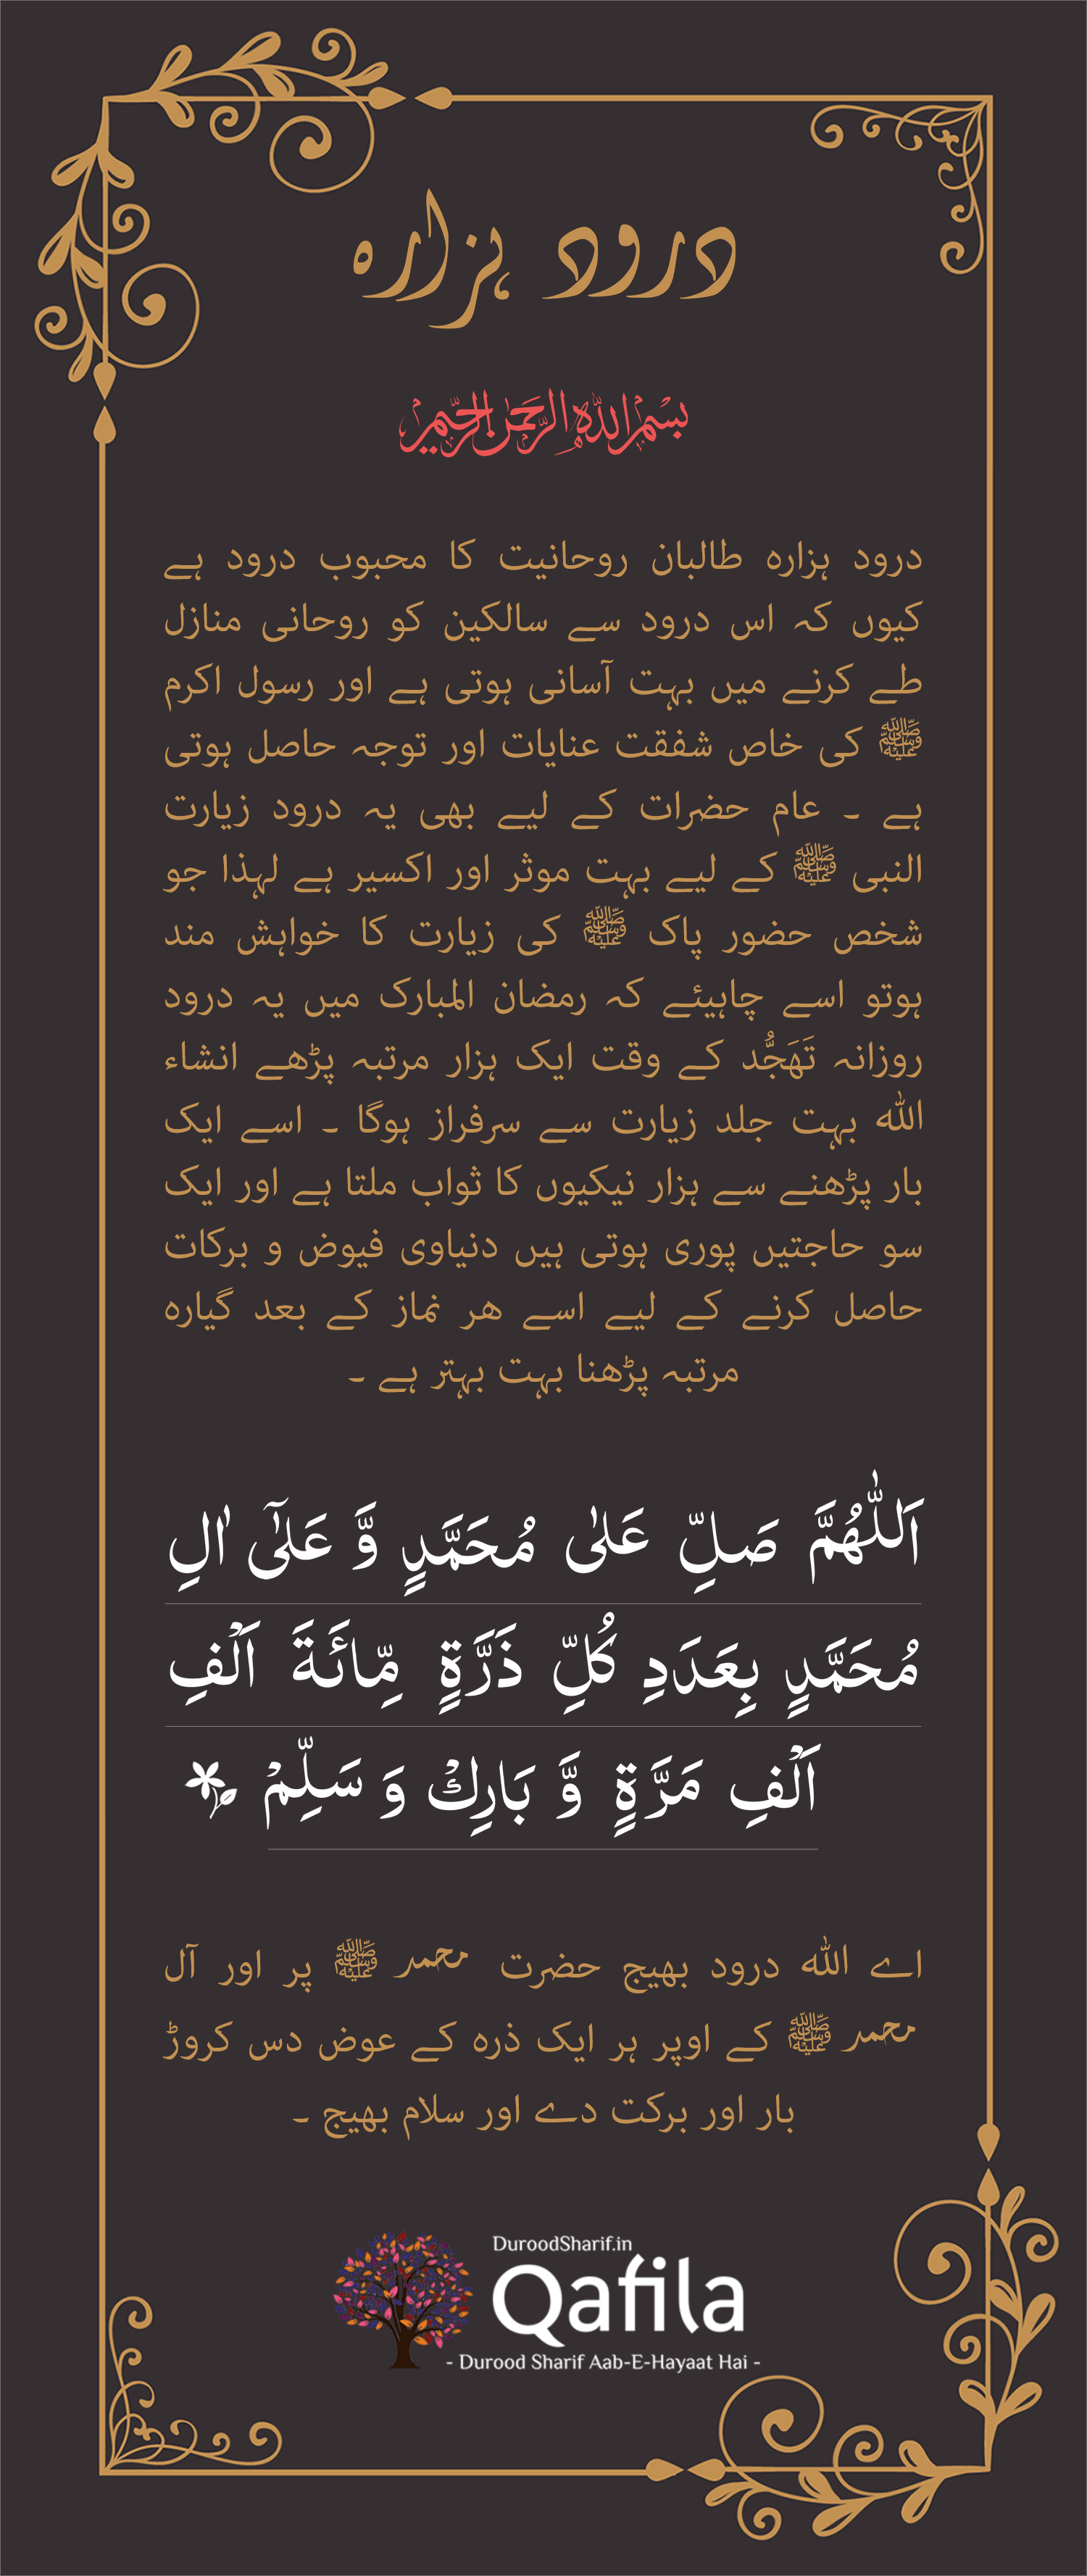 درود ہزارہ
بسم الله الرحمن الرحيم
درود ہزارہ طالبان روحانیت کا محبوب درود ہے
کیوں کہ اس درود سے سالکین کو روحانی منازل
طے کرنے میں بہت آسانی ہوتی ہے اور رسول اکرم
ﷺ کی خاص شفقت عنایات اور توجہ حاصل ہوتی
ہے ۔ عام حضرات کے لیے بھی یہ درود زیارت
النبی ﷺ کے لیے بہت موثر اور اکسیر ہے لہذا جو
شخص حضور پاک ﷺ کی زیارت کا خواہش مند
ہوتو اسے چاہیئے کہ رمضان المبارک میں یہ درود
روزانہ تَهَجُّد کے وقت ایک ہزار مرتبہ پڑھے انشاء
الله بہت جلد زیارت سے سرفراز ہوگا ۔ اسے ایک
بار پڑھنے سے ہزار نیکیوں کا ثواب ملتا ہے اور ایک
سو حاجتیں پوری ہوتی ہیں دنیاوی فیوض و برکات
حاصل کرنے کے لیے اسے ھر نماز کے بعد گیارہ
مرتبہ پڑھنا بہت بہتر ہے ۔
اَللّٰهُمَّ صَلِّ عَلٰى مُحَمَّدٍ وَّ عَلٰٓى اٰلِ
مُحَمَّدٍ بِعَدَدِ كُلِّ ذَرَّةٍ مِّائَةَ اَلْفِ
اَلْفِ مَرَّةٍ وَّ بَارِكْ وَ سَلِّمْ
اے الله درود بھیج حضرت محمد ﷺ پر اور آل
محمد ﷺ کے اوپر ہر ایک ذرہ کے عوض دس کروڑ
بار اور برکت دے اور سلام بھیج ۔
DuroodSharif.in
Qafila
- Durood Sharif Aab-E-Hayaat Hai -